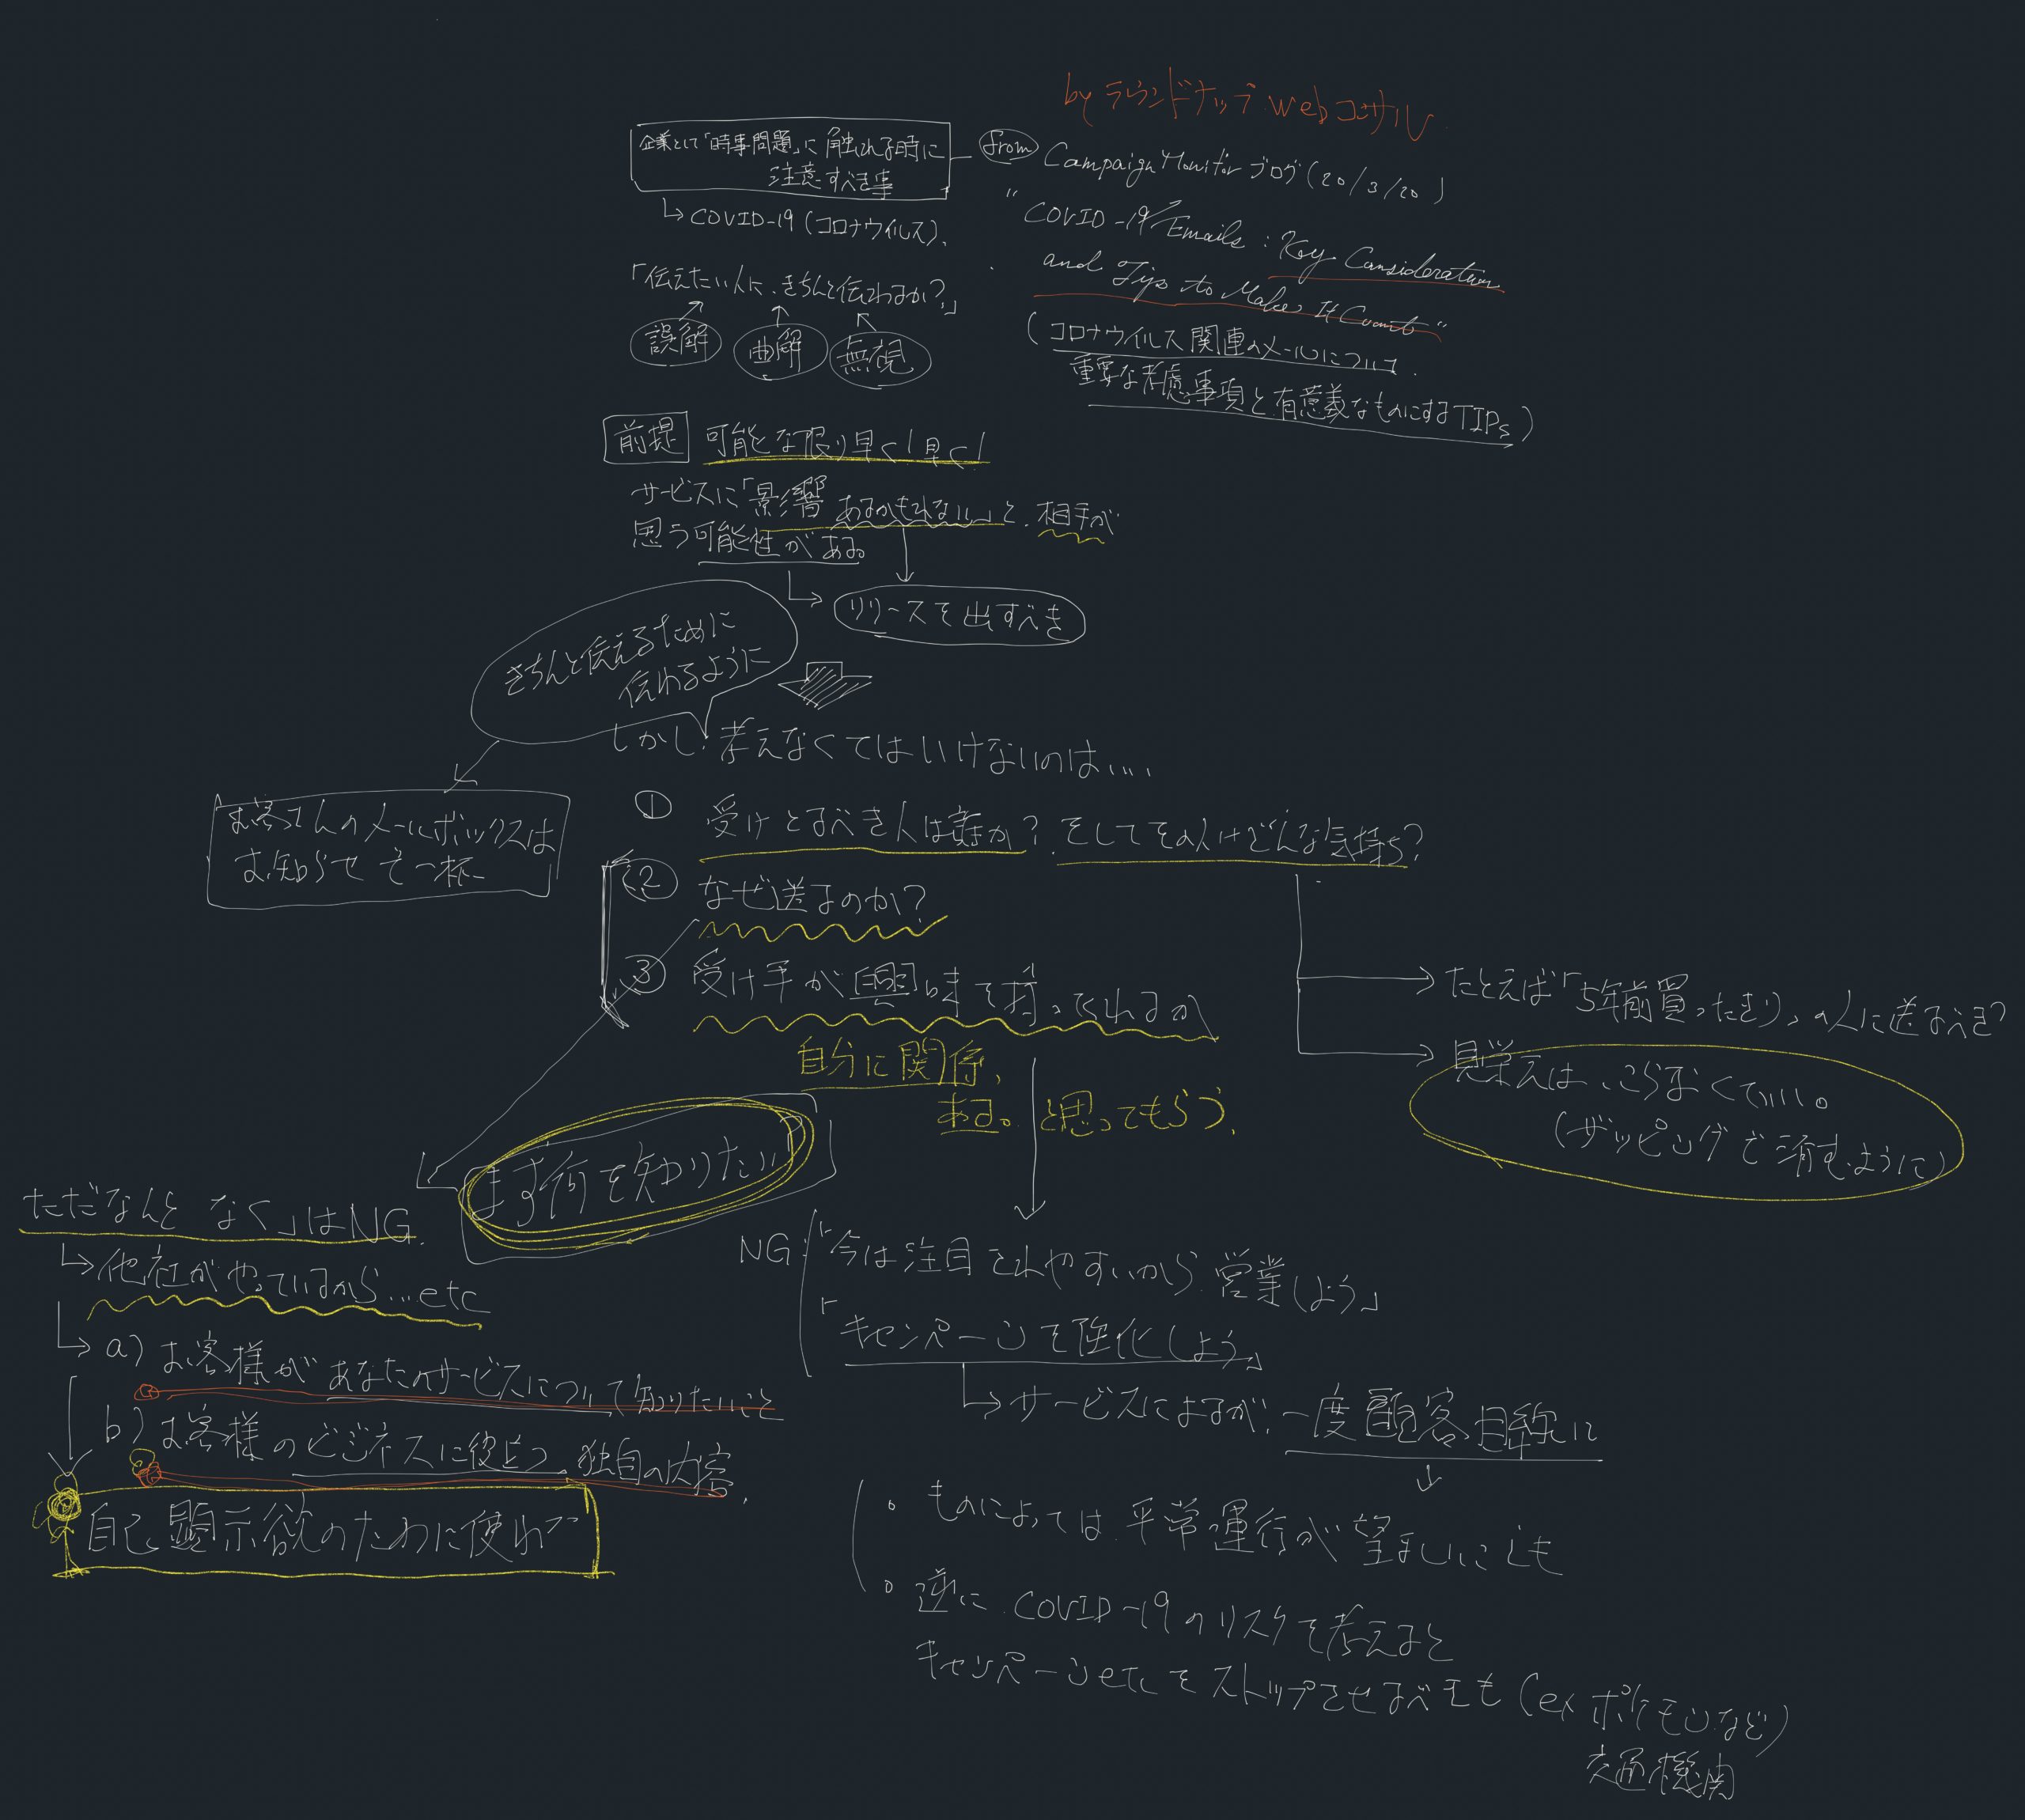 by ラウンドナップ Webコンサル
企業として「時事問題」に触れる時に
注意すべき事
from Campaign Monitor ブログ(20/3/20)
↳ COVID-19(コロナウイルス).
"COVID-19 Emails: Key Consideration
and Tips to Make It Count"
(コロナウイルス関連のメールについて.
重要な考慮事項と有意義なものにするTIPs)
「伝えたい人に、きちんと伝わるか?」
誤解 曲解 無視
前提 可能な限り早く!早く!
サービスに「影響あるかもしれない」と、相手が
思う可能性がある。
リリースを出すべき
きちんと伝えるために
伝わるように
しかし、考えなくてはいけないのは....
お客さんのメールボックスは
お知らせで一杯
① 受けとるべき人は誰か?そしてその人はどんな気持ち?
② なぜ送るのか?
③ 受け手が興味を持ってくれるか
たとえば「5年前買ったきり」の人に送るべき?
見栄えは、こらなくていい。
(ザッピングで済むように)
自分に関係、
ある。と思ってもらう.
まず何を知りたい
ただなんとなく」はNG.
↳ 他社がやっているから...etc
↳ a) お客様があなたのサービスについて知りたいこと
b) お客様のビジネスに役立つ、独自の内容.
自己顕示欲のために使わず
NG:「今は注目されやすいから営業しよう」
「キャンペーンを強化しよう」
↳ サービスによるが、一度顧客目線に
• ものによっては平常運行が望ましいことも
• 逆にCOVID-19のリスクを考えると
キャンペーンetcをストップさせるべきも(ex ポケモンなど)
交通機関